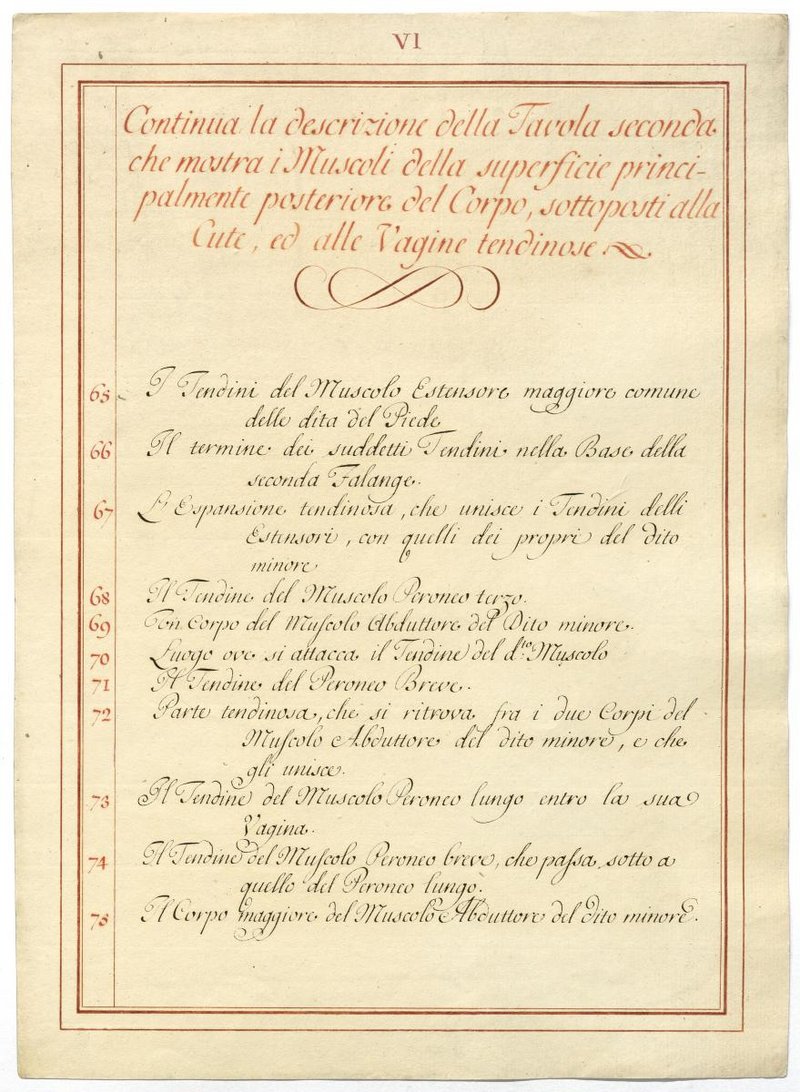 VI
Continua la descrizione della Tavola seconda
che mostra i Muscoli della superficie princi-
palmente posteriore del Corpo, sottoposti alla
Cute, ed alle Vagine tendinose
65 I Tendini del Muscolo Estensore maggiore comune
delle dita del Piede
66 Il termine dei suddetti Tendini nella Base della
seconda Falange.
67 L'Espansione tendinosa, che unisce i Tendini delli
Estensori, con quelli dei propri del dito
minore
68 Il Tendine del Muscolo Peroneo terzo.
69 Un Corpo del Muſcolo Abduttore del Dito minore.
70 Luogo ove si attacca il Tendine del d.to Muscolo
71 Il Tendine del Peroneo Breve.
72 Parte tendinosa, che si ritrova fra i due Corpi del
Muſcolo Abduttore del dito minore, e che
gli unisce.
73 Il Tendine del Muscolo Peroneo lungo entro la sua
Vagina.
74 Il Tendine del Muſcolo Peroneo breve, che paſsa sotto a
quello del Peroneo lungo.
75 Il Corpo maggiore del Muscolo Abduttore del dito minore.